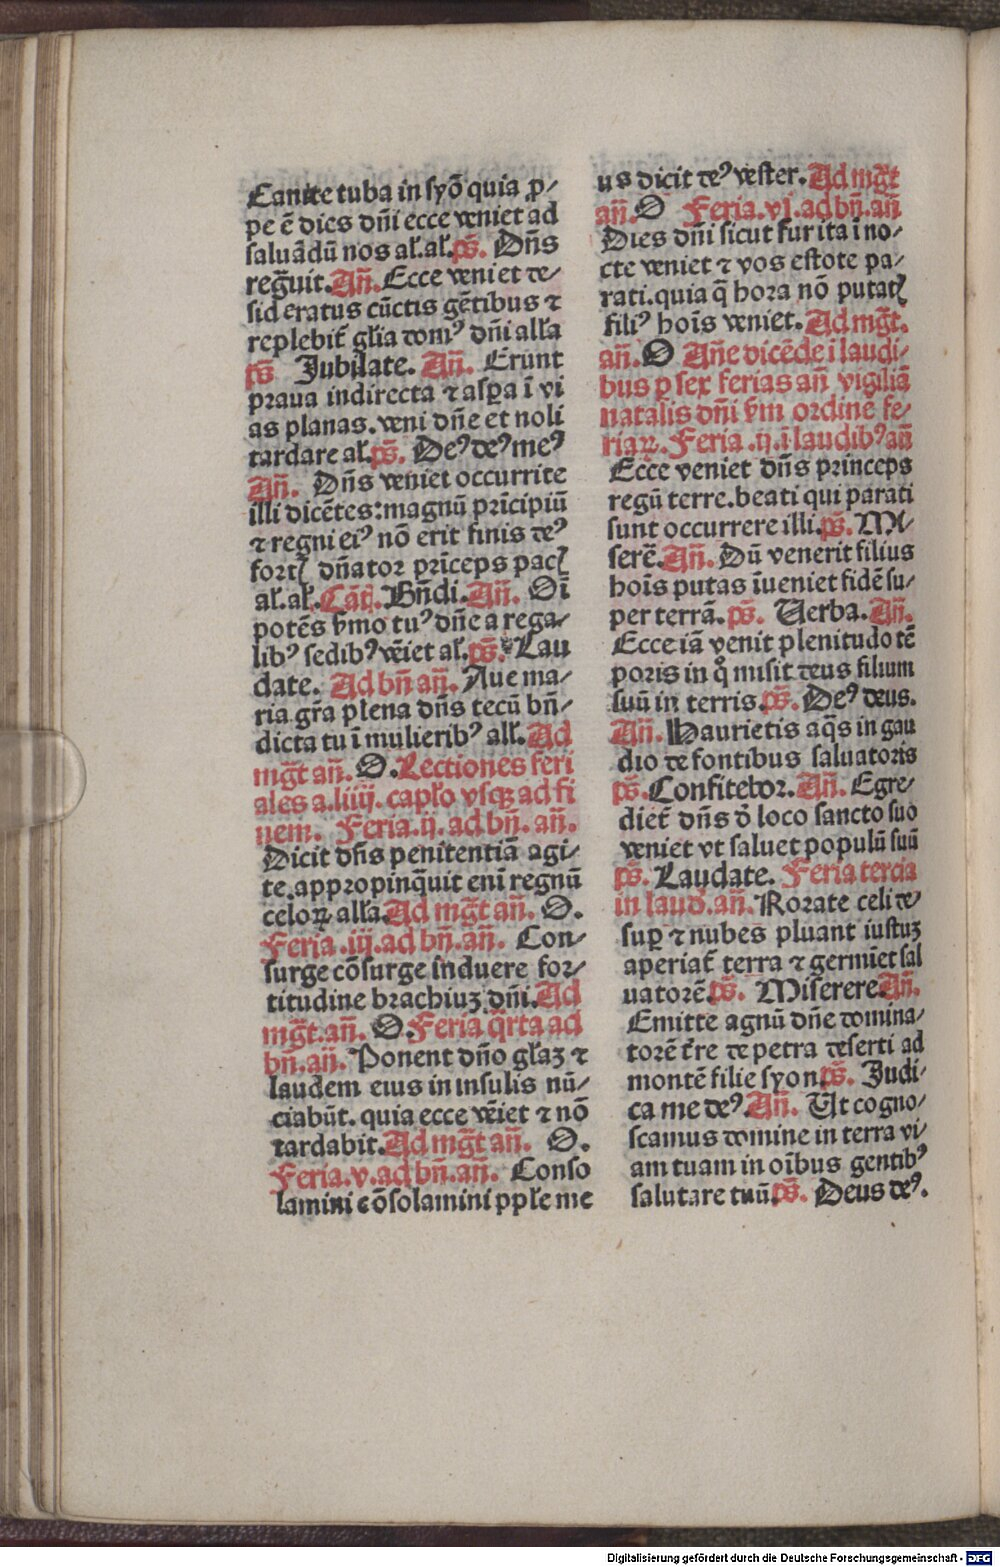 Canite tuba in syō quia ꝓ⸗
pe ē dies dñi ecce veniet ad
saluādū nos al̄.al̄.pš. Dñs
regͣuit. Añ. Ecce veniet de⸗
sideratus cūctis gētibus ⁊
replebit̄ gl̄ia domꝰ dñi all̄a
pš Jubilate. Añ. Erunt
praua indirecta ⁊ aspa ī vi
as planas. veni dñe et noli
tardare al̄.pš. Deꝰ deꝰ meꝰ
Añ. Dñs veniet occurrite
illi dicētes: magnū prīcipiū
⁊ regni eiꝰ nō erit finis deꝰ
fortꝭ dñator prīceps pacꝭ
al̄.al̄. Cāt̄. Bñdi. Añ. Oī
potēs šmo tuꝰ dñe a rega⸗
libꝰ sedibꝰ vēiet al̄.pš. Lau
date. Ad bñ añ. Aue ma⸗
ria gr̄a plena dñs tecū bñ⸗
dicta tu ī mulieribꝰ all̄. Ad
mḡt añ. O. Lectiones feri
ales a.liiij. capl̄o vsqꝫ ad fi
nem. Feria.ij. ad bñ. añ.
Dicit dñs penitentiā agi⸗
te. appropinq̄uit enī regnū
celoꝝ all̄a. Ad mḡt añ. O.
Feria.iij.ad bñ.añ. Con⸗
surge cōsurge induere for⸗
titudine brachiuꝫ dñi. Ad
mḡt.añ. O. Feria q̄rta ad
bñ.añ. Ponent dño gl̄aꝫ ⁊
laudem eius in insulis nū⸗
ciabūt. quia ecce vēiet ⁊ nō
tardabit. Ad mḡt añ. O.
Feria.v.ad bñ.añ. Conso
lamini cōsolamini pple me
us dicit deꝰ vester. Ad mḡt
añ. O Feria.vj.ad bñ.añ
Dies dñi sicut fur ita ī no⸗
cte veniet ⁊ vos estote pa⸗
rati. quia q̄ hora nō putatꝭ
filiꝰ hoīs veniet. Ad mḡt.
añ. O Añe dicēde ī laudi⸗
bus ꝑ sex ferias an̄ vigiliā
natalis dñi šm ordinē fe⸗
riaꝝ. Feria .ij. ī laudibꝰ añ
Ecce veniet dñs princeps
regū terre. beati qui parati
sunt occurrere illi. pš. Mi⸗
serē. Añ. Dū venerit filius
hoīs putas īueniet fidē su⸗
per terrā. pš. Verba. Añ.
Ecce iā venit plenitudo tē
poris in qͦ misit deus filium
suū in terris. pš. Deꝰ deus.
Añ. Haurietis aq̄s in gau
dio de fontibus saluatoris
pš. Confitebor. Añ. Egre⸗
diet̄ dñs d̄ loco sancto suo
veniet vt saluet populū suū
pš. Laudate. Feria tercia
in laud̄.añ. Rorate celi de⸗
suꝑ ⁊ nubes pluant iustuꝫ
aperiat̄ terra ⁊ germīet sal
uatorē. pš. Miserere. Añ.
Emitte agnū dñe domina⸗
torē t̄re de petra deserti ad
montē filie syon. pš. Judi⸗
ca me deꝰ. Añ. Vt cogno⸗
scamus domine in terra vi⸗
am tuam in oībus gentibꝰ
salutare tuū. pš. Deus deꝰ.
Digitalisierung gefördert durch die Deutsche Forschungsgemeinschaft - DFG